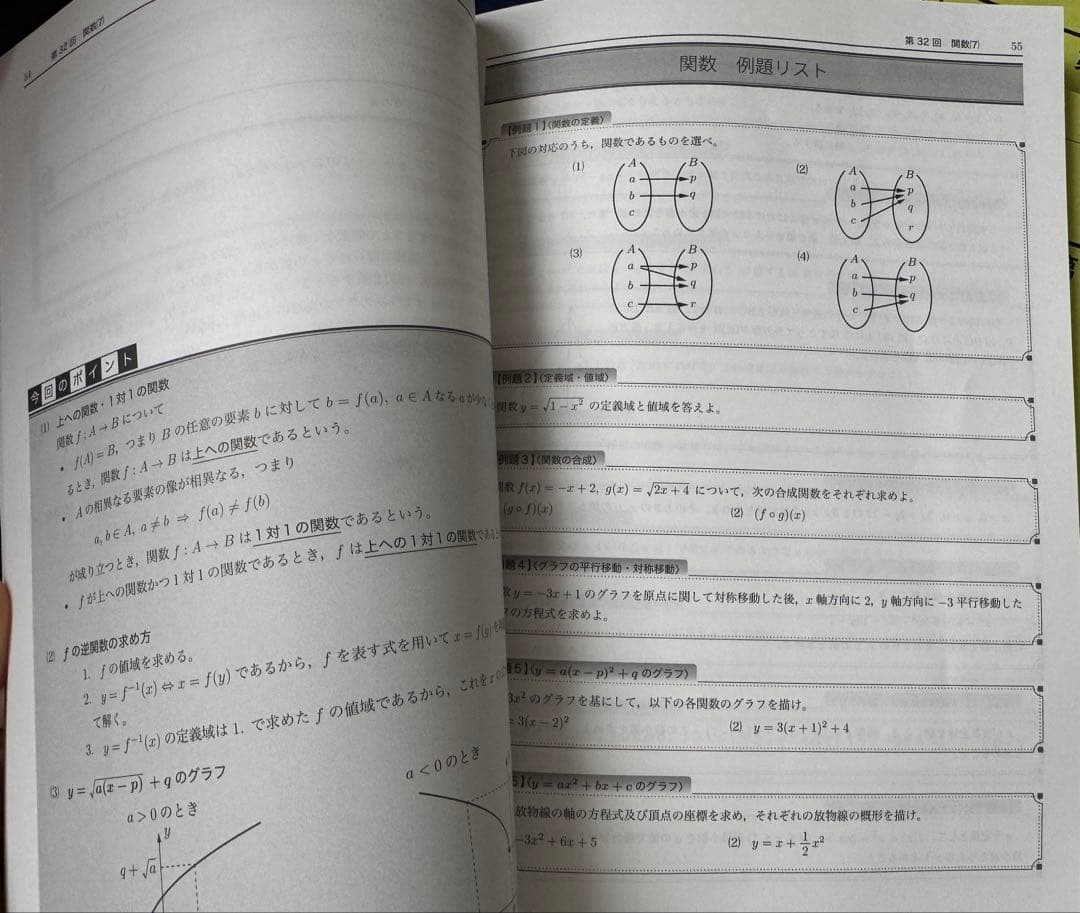 54
第32回 関数(7)
今回のポイント
(1) 上への関数・1対1の関数
関数 f : A → B について
• f(A) = B, つまり B の任意の要素 b に対して b = f(a), a ∈ A なる a が少な
るとき, 関数 f : A → B は上への関数であるという。
• A の相異なる要素の像が相異なる, つまり
a, b ∈ A, a ≠ b ⇒ f(a) ≠ f(b)
が成り立つとき, 関数 f : A → B は1対1の関数であるという。
• f が上への関数かつ1対1の関数であるとき, f は上への1対1の関数である
(2) f の逆関数の求め方
1. f の値域を求める。
2. y = f⁻¹(x) ⇔ x = f(y) であるから, f を表す式を用いて x = f(y) を
て解く。
3. y = f⁻¹(x) の定義域は 1. で求めた f の値域であるから, これを x の
(3) y = √(a(x − p)) + q のグラフ
a > 0 のとき
a < 0 のとき
y
q + √a
第32回 関数(7) 55
関数 例題リスト
【例題1】〈関数の定義〉
下図の対応のうち, 関数であるものを選べ。
(1) A B (2) A B
a p a p
b q b q
c c r
(3) A B (4) A B
a p a p
b q b q
c r c
【例題2】〈定義域・値域〉
関数 y = √(1 − x²) の定義域と値域を答えよ。
例題3】〈関数の合成〉
関数 f(x) = −x + 2, g(x) = √(2x + 4) について, 次の合成関数をそれぞれ求めよ。
(g ∘ f)(x) (2) (f ∘ g)(x)
題4】〈グラフの平行移動・対称移動〉
数 y = −3x + 1 のグラフを原点に関して対称移動した後, x 軸方向に 2, y 軸方向に −3 平行移動した
フの方程式を求めよ。
題5】〈y = a(x − p)² + q のグラフ〉
3x² のグラフを基にして, 以下の各関数のグラフを描け。
= 3(x − 2)² (2) y = 3(x + 1)² + 4
6】〈y = ax² + bx + c のグラフ〉
放物線の軸の方程式及び頂点の座標を求め, それぞれの放物線の概形を描け。
−3x² + 6x + 5 (2) y = x + 1/2 x²